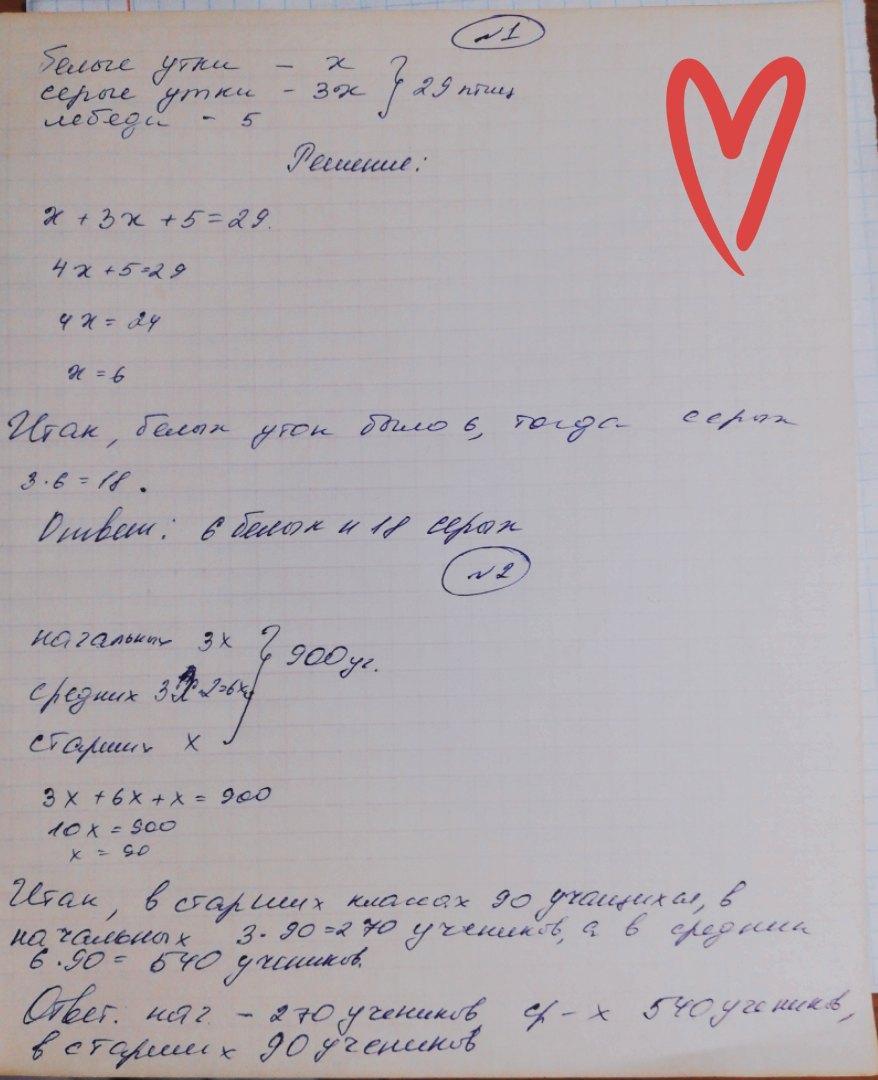 №1
белые утки - x
серые утки - 3x } 29 птиц
лебеди - 5
Решение:
x + 3x + 5 = 29.
4x + 5 = 29
4x = 24
x = 6
Итак, белых уток было 6, тогда серых
3 · 6 = 18.
Ответ: 6 белых и 18 серых
№2
начальных 3x
средних 3x·2=6x } 900 уч.
старших x
3x + 6x + x = 900
10x = 900
x = 90
Итак, в старших классах 90 учащихся, в
начальных 3·90=270 учеников, а в средних
6·90 = 540 учеников.
Ответ. нач. - 270 учеников, ср-х 540 учеников,
в старших 90 учеников